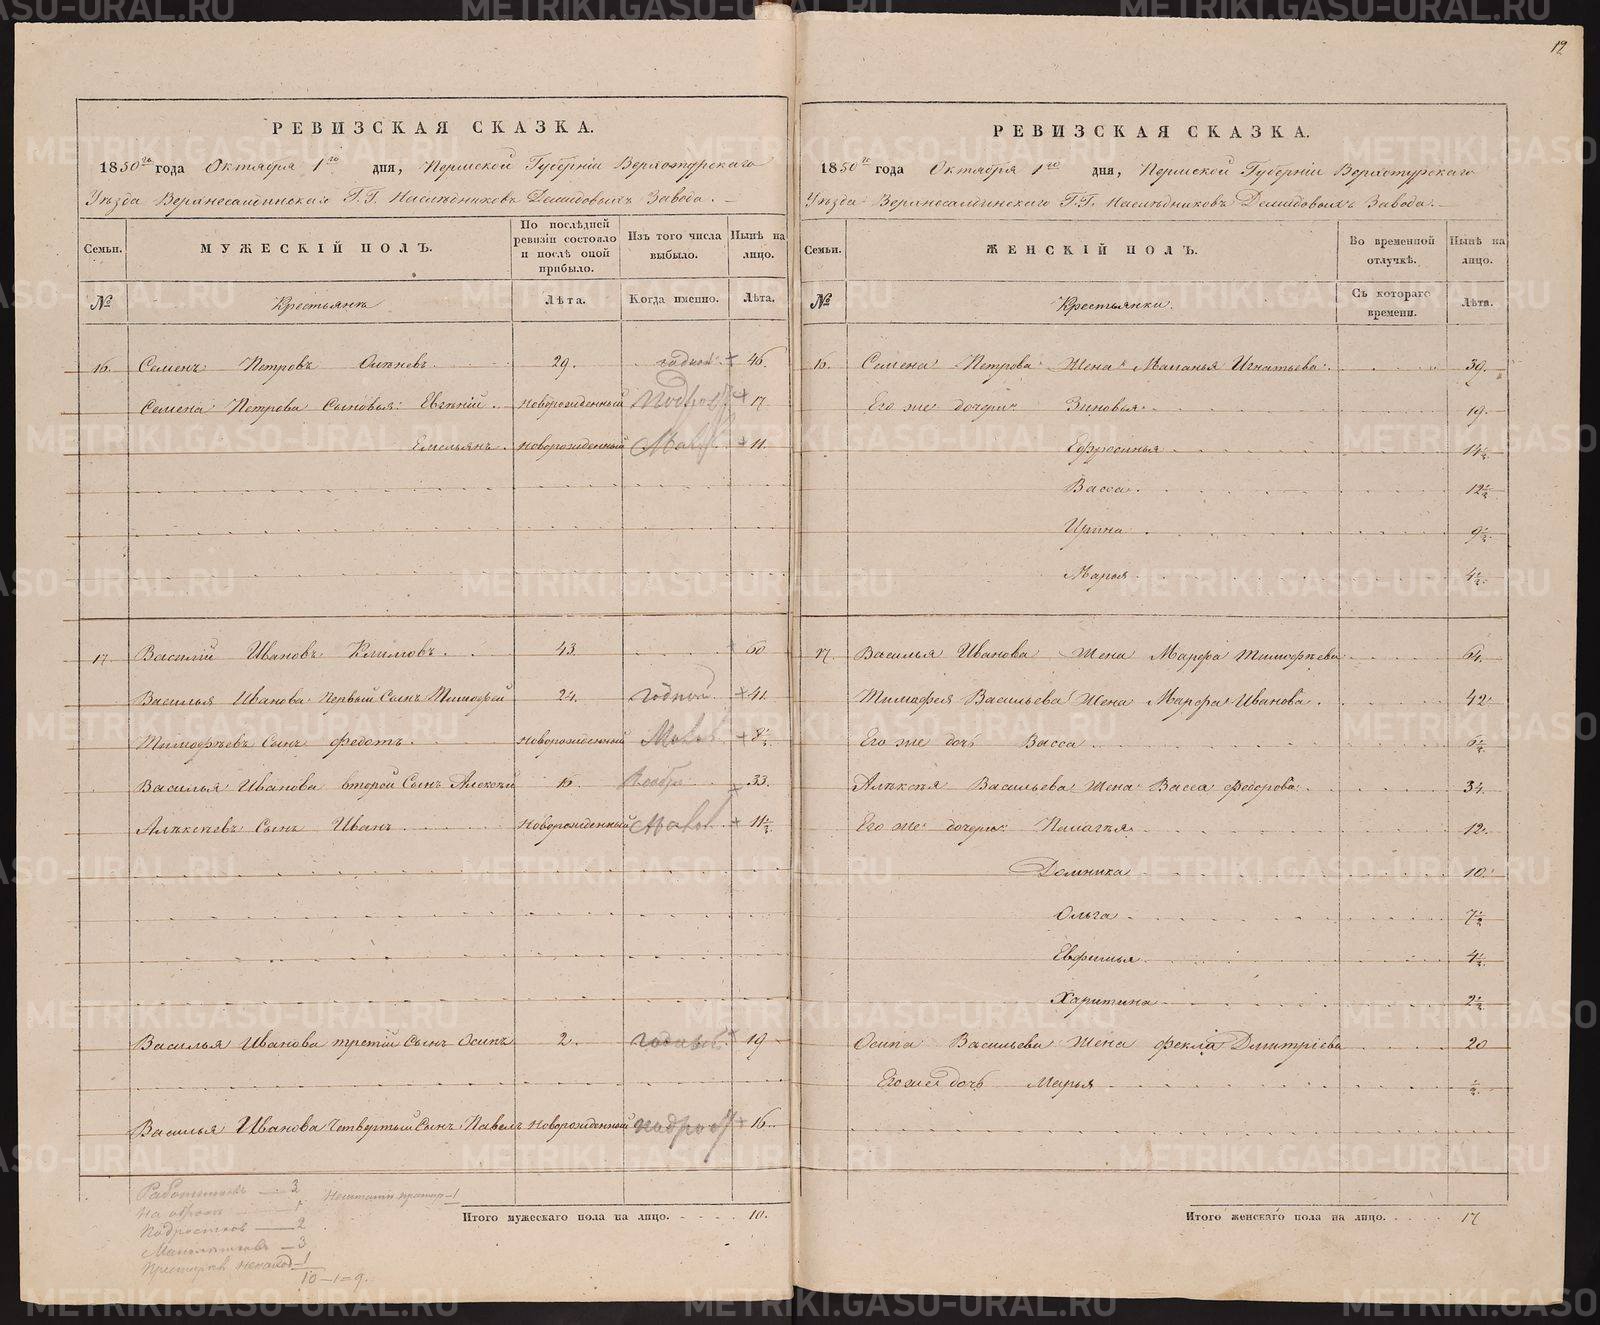 12
РЕВИЗСКАЯ СКАЗКА.
1850го года Октября 1го дня, Пермской Губерніи Верхотурскаго
Уѣзда Верхнесалдинскаго Г.Г. Наслѣдниковъ Демидовыхъ Завода.
Семьи.
МУЖЕСКІЙ ПОЛЪ.
По послѣдней ревизіи состояло и послѣ оной прибыло.
Изъ того числа выбыло.
Нынѣ на лицо.
№
Крестьянъ
Лѣта.
Когда именно.
Лѣта.
16. Семенъ Петровъ 29. годной 46.
Семена Петрова Сыновья: Евгѣній. Новорожденный Подрост 17
Емельянъ. Новорожденный Малол 11.
17 Василій Ивановъ Климовъ. 43 60
Василья Иванова Первый Сынъ Тимофей 24. Годной 41.
Тимофѣевъ Сынъ Федотъ. Новорожденный Малол 8½
Василья Иванова второй Сынъ Алексѣй 16. 33.
Алексѣевъ Сынъ Иванъ. Новорожденный Малол 11½
Василья Иванова третій Сынъ Осипъ 2. 19
Василья Иванова Четвертый Сынъ Павелъ Новорожденный подрост 16.
Итого мужескаго пола на лицо. 10.
Работников — 3
На оброк — 1
Подростков — 2
Малолѣтков — 3
10 – 1 = 9.
РЕВИЗСКАЯ СКАЗКА.
1850го года Октября 1го дня, Пермской Губерніи Верхотурскаго
Уѣзда Верхнесалдинскаго Г.Г. Наслѣдниковъ Демидовыхъ Завода.
Семьи.
ЖЕНСКІЙ ПОЛЪ.
Во временной отлучкѣ.
Нынѣ на лицо.
№
Крестьянки.
Съ котораго времени.
Лѣта.
16. Семена Петрова Жена Маланья Игнатьева. 39.
Его же дочери: Зиновья. 19.
Ефросинья 14½
Васса. 12½
Ирина 9½
Марья 4½
17. Василья Иванова Жена Марфа Тимофѣева 64.
Тимофея Васильева Жена Марфа Иванова. 42
Его же дочь Васса 6½
Алѣксѣя Васильева Жена Васса Федорова. 34.
Его же дочери: Палагѣя. 12.
Домника 10.
Ольга 7½
Евфимья. 4½
Харитина 2½
Осипа Васильева Жена Фекла Дмитріева 20
Его же дочь Марья ½
Итого женскаго пола на лицо. 17
METRIKI.GASO-URAL.RU